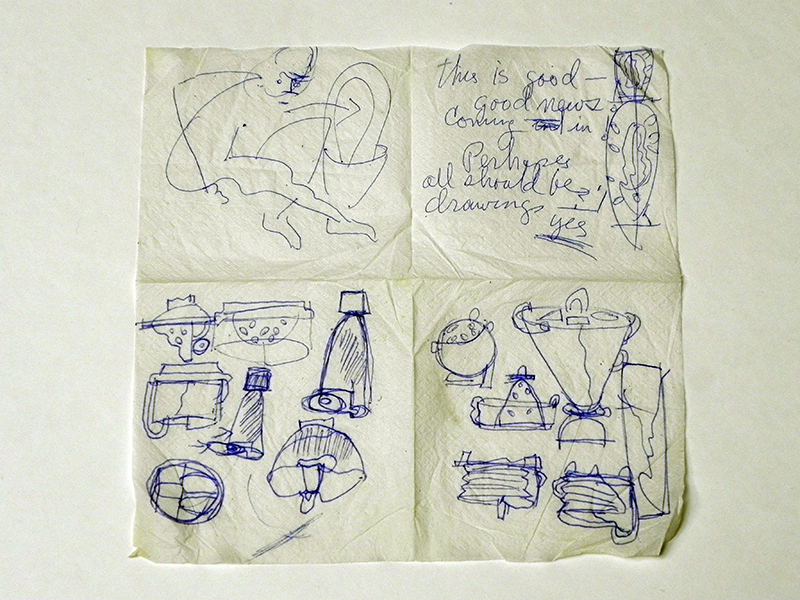 this is good —
good news
Coming in
Perhaps
all should be
drawings
yes